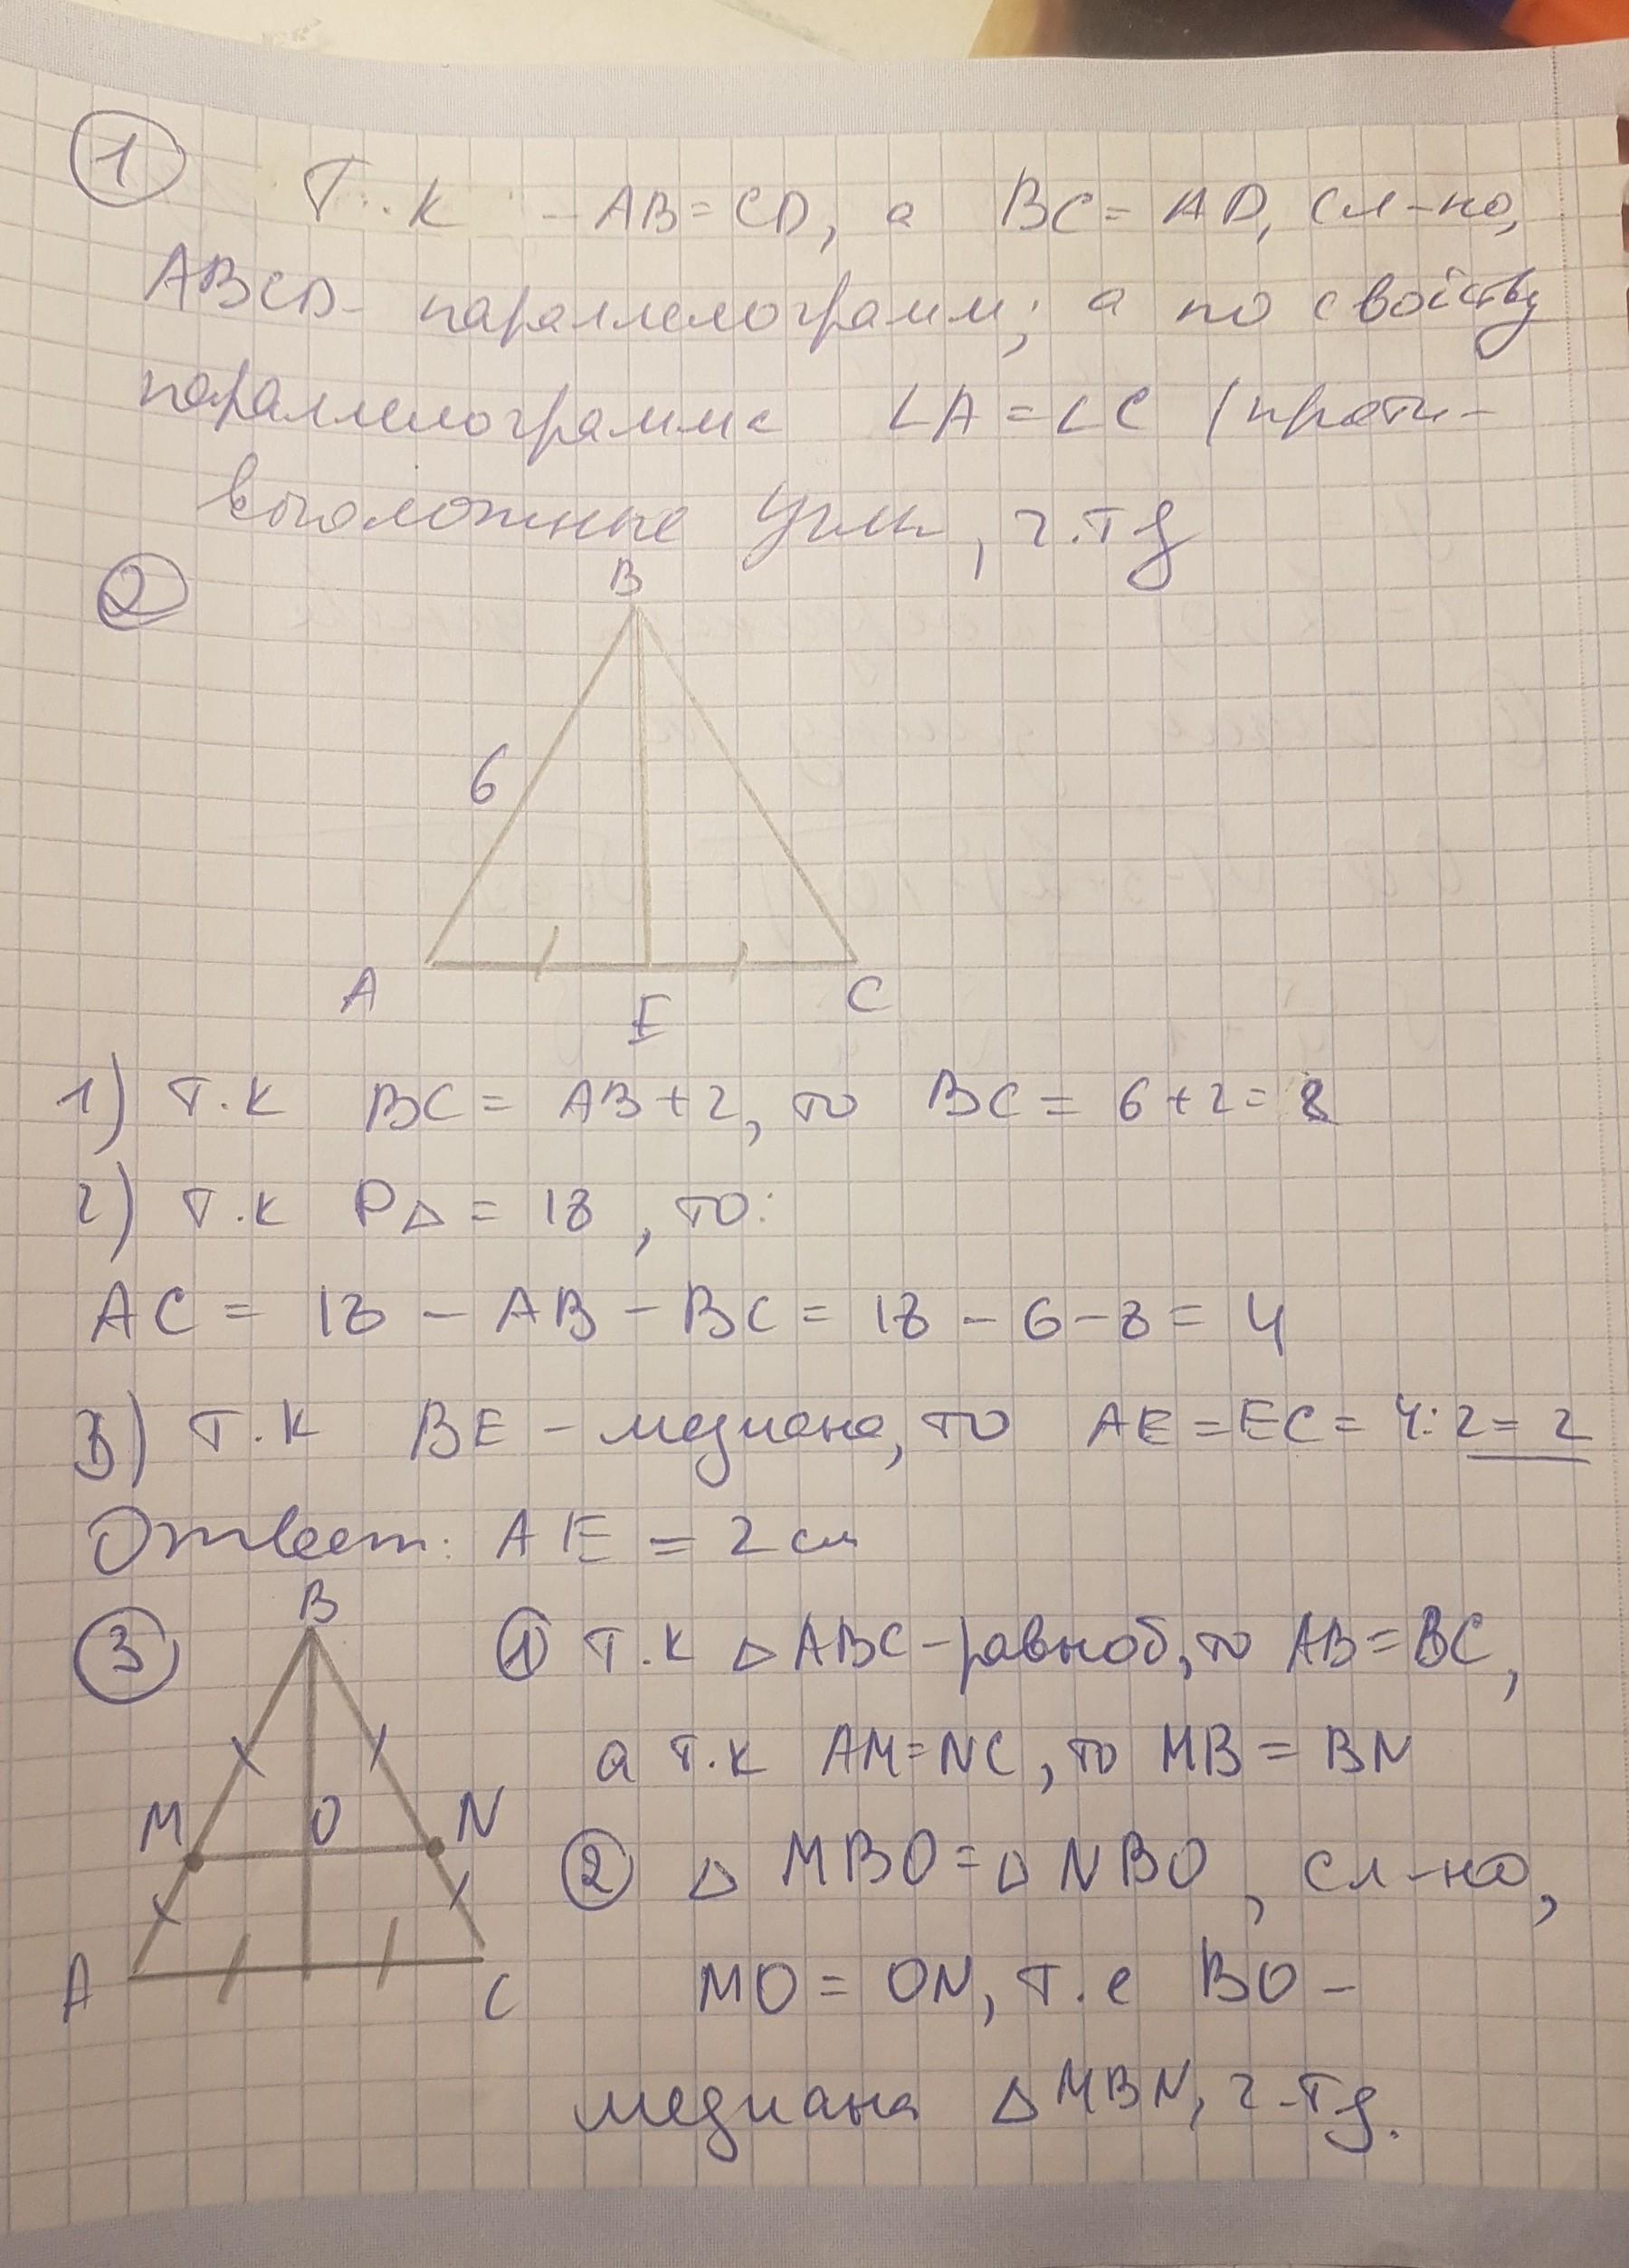 1
Т.к - AB = CD, а BC = AD, сл-но,
ABCD - параллелограмм; а по свойству
параллелограмма ∠A = ∠C (проти-
воположные углы, ч.тд
2
B
6
A
C
E
1) т.к BC = AB + 2, то BC = 6 + 2 = 8
2) т.к P△ = 18, то:
AC = 18 - AB - BC = 18 - 6 - 8 = 4
3) т.к BE - медиана, то AE = EC = 4:2 = 2
Ответ: AE = 2 см
3
B
1 т.к △ ABC - равноб, то AB = BC,
а т.к AM = NC, то MB = BN
M
O
N
2 △ MBO = △ NBO, сл-но,
A
C
MO = ON, т.е BO -
медиана △ MBN, ч.тд.